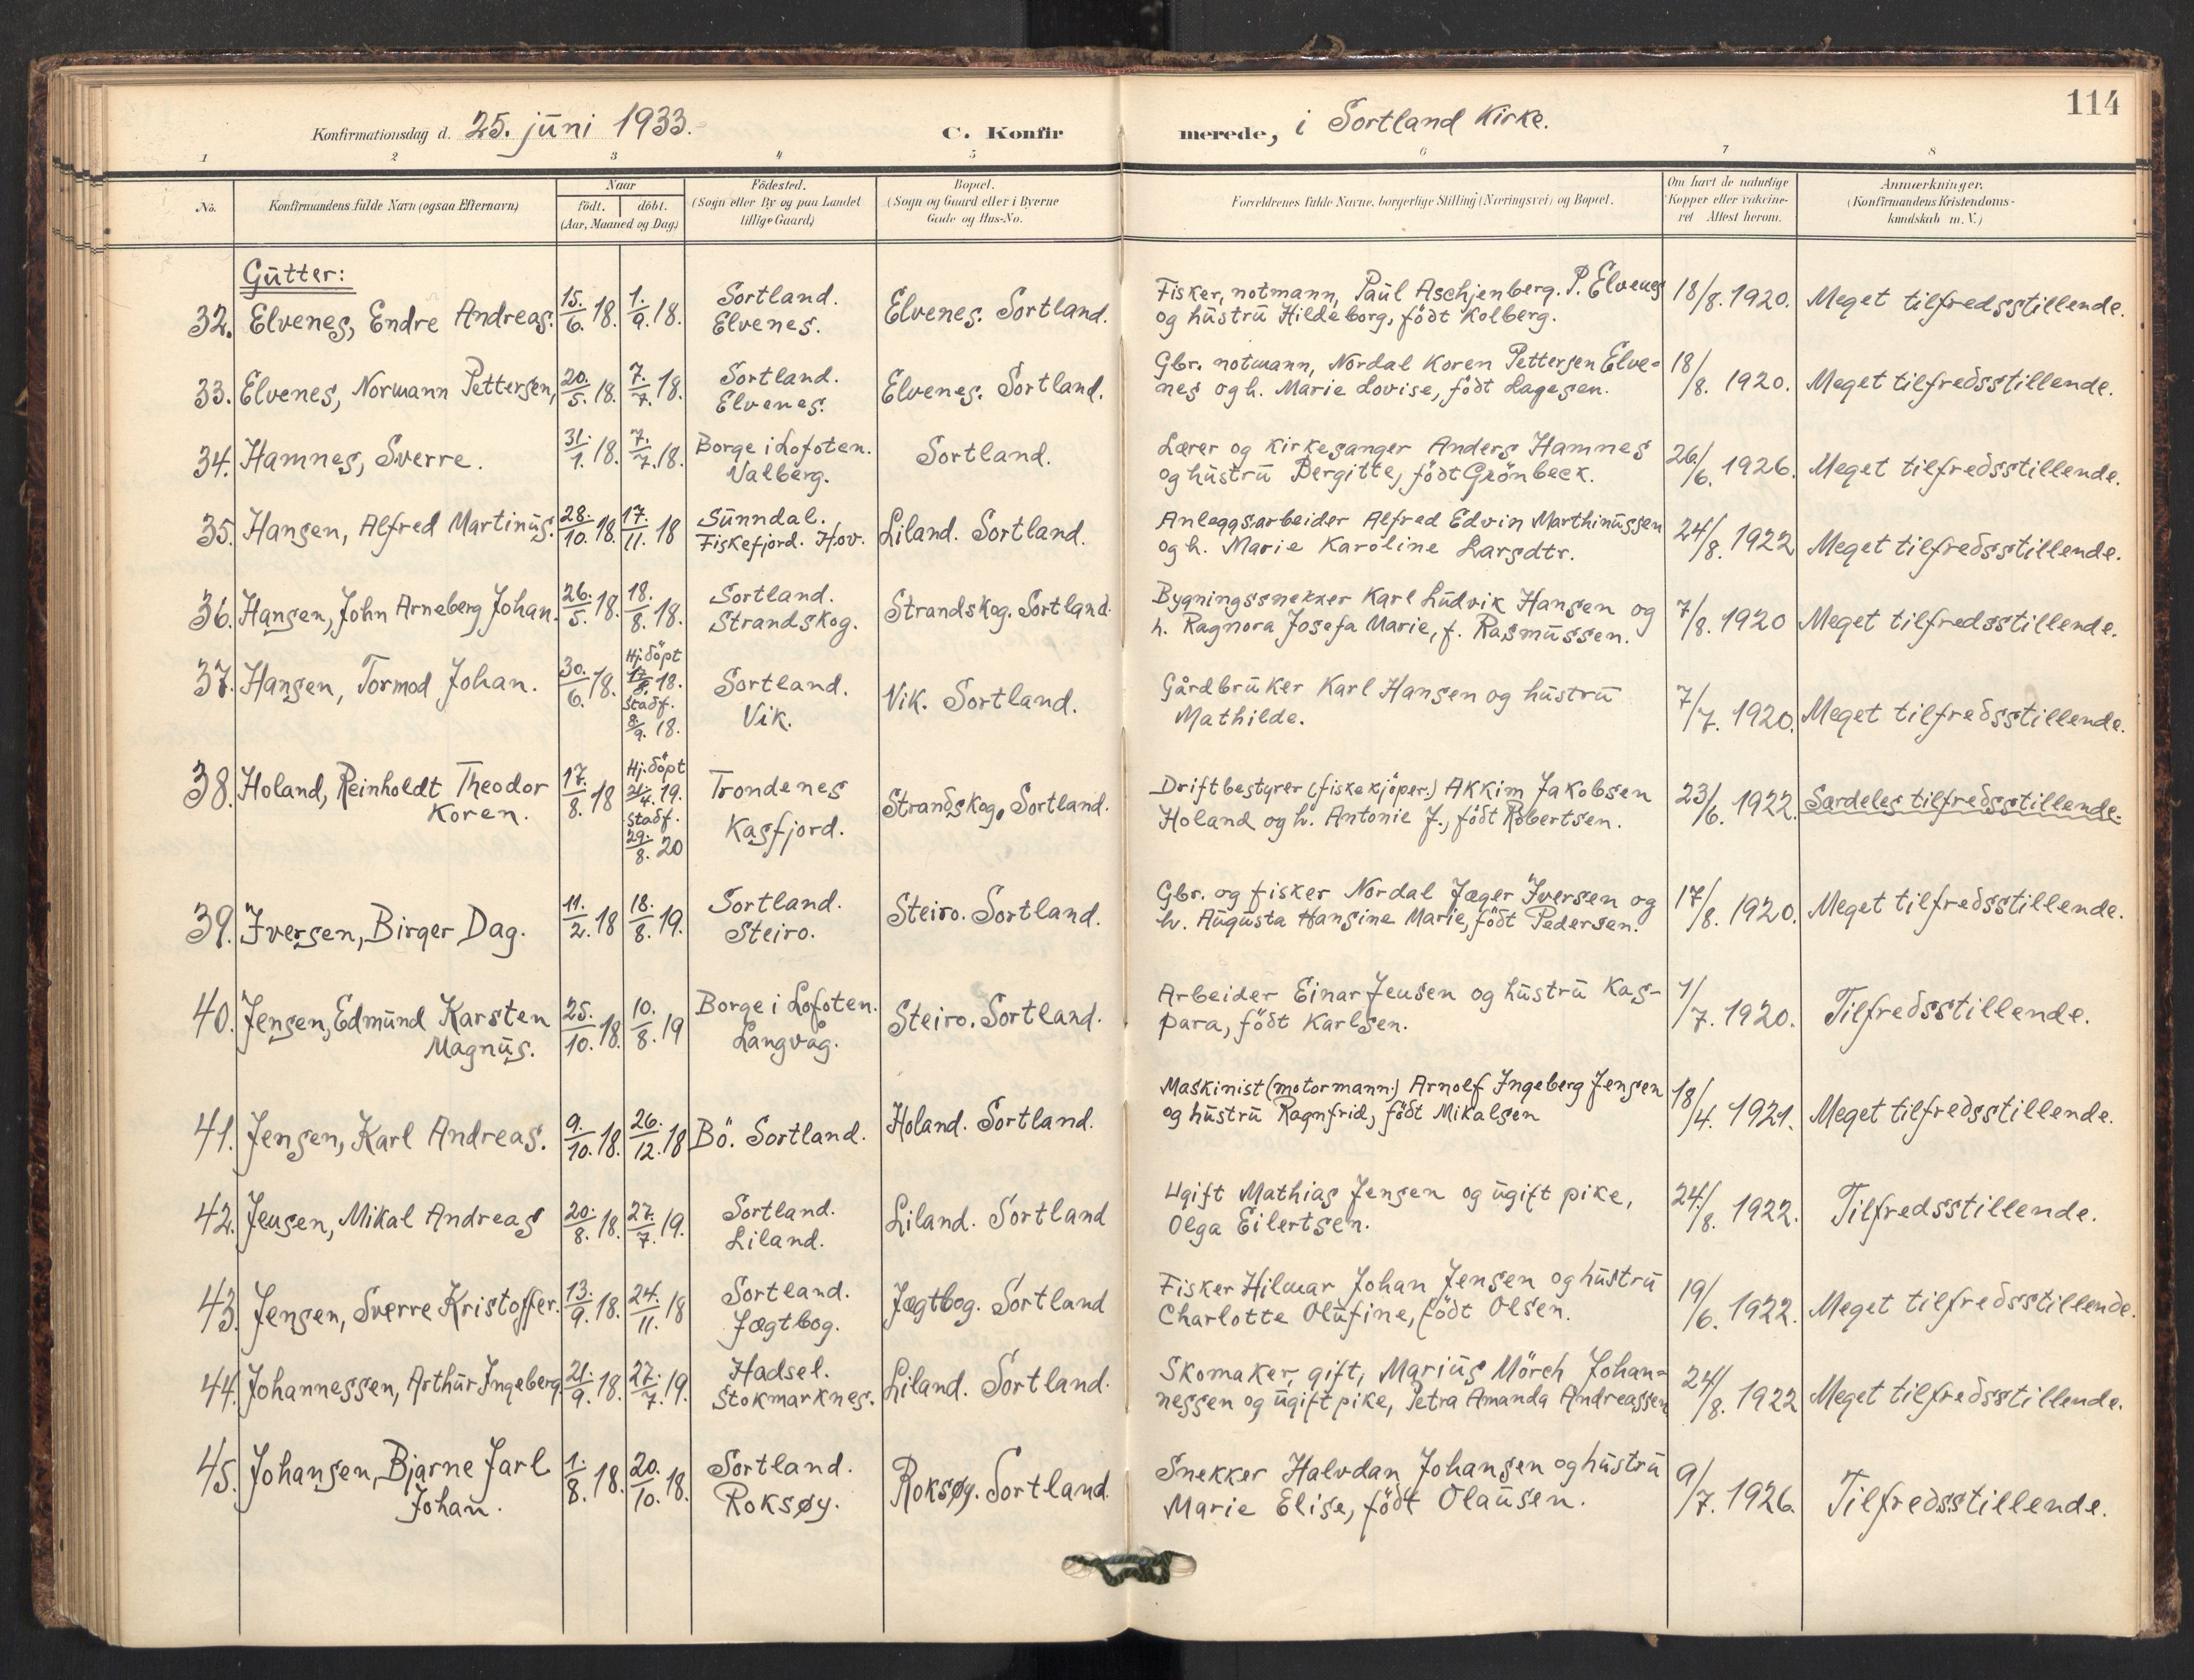 114
Konfirmationsdag d. 25. juni 1933. C. Konfirmerede, i Sortland Kirke.
1 2 3 4 5 6 7 8
No. Konfirmandens fulde Navn (ogsaa Efternavn) Naar födt. döbt. (Aar, Maaned og Dag) Födested. (Sogn eller By og paa Landet tillige Gaard) Bopæl. (Sogn og Gaard eller i Byerne Gade og Hus-No. Forældrenes fulde Navne, borgerlige Stilling (Næringsvei) og Bopæl. Om havt de naturlige Kopper eller vakcineret Attest herom. Anmærkninger. (Konfirmandens Kristendomskundskab m. V.)
Gutter:
32. Elvenes, Endre Andreas. 15./6. 18. 1./9. 18. Sortland. Elvenes. Elvenes. Sortland. Fisker, notmann, Paul Aschjenberg. P. Elvenes
og hustru Hildeborg, födt Kolberg. 18/8. 1920. Meget tilfredsstillende.
33. Elvenes, Normann Pettersen, 20./5. 18. 7./7. 18. Sortland. Elvenes. Elvenes. Sortland. Gbr. notmann, Nordal Koren Pettersen Elve-
nes og h. Marie Lovise, födt Hagesen. 18/8. 1920. Meget tilfredsstillende.
34. Hamnes, Sverre. 31./1. 18. 7./7. 18. Borge i Lofoten. Valberg. Sortland. Lærer og kirkesanger Anders Hamnes
og hustru Bergitte, födt Grönbeck. 26/6. 1926. Meget tilfredsstillende.
35. Hansen, Alfred Martinus. 28./10. 18. 17./11. 18 Sunndal. Fiskefjord. Hov. Liland. Sortland. Anleggsarbeider Alfred Edvin Marthinussen
og h. Marie Karoline Larsdtr. 24/8. 1922 Meget tilfredsstillende.
36. Hansen, John Arneberg Johan. 26./5. 18. 18./8. 18. Sortland. Strandskog. Strandskog. Sortland. Bygningssnekker Karl Ludvik Hansen og
h. Ragnora Josefa Marie, f. Rasmussen. 7/8. 1920 Meget tilfredsstillende.
37. Hansen, Tormod Johan. 30./6. 18. Hj. döpt 17/8. 18. stadf. 8/9. 18. Sortland. Vik. Vik. Sortland. Gårdbruker Karl Hansen og hustru
Mathilde. 7/7. 1920. Meget tilfredsstillende.
38. Holand, Reinholdt Theodor
Koren. 17./8. 18 Hj. döpt 21/4. 19. stadf. 29./8. 20 Trondenes Kasfjord. Strandskog. Sortland. Driftbestyrer (fiskekjöper.) Akkim Jakobsen
Holand og h. Antonie J., födt Robertsen. 23/6. 1922. Særdeles tilfredsstillende.
39. Iversen, Birger Dag. 11./2. 18 18./8. 19. Sortland. Steiro. Steiro. Sortland. Gbr. og fisker Nordal Jæger Iversen og
h. Augusta Hansine Marie, födt Pedersen. 17/8. 1920. Meget tilfredsstillende.
40. Jensen, Edmund Karsten
Magnus. 25./10. 18. 10./8. 19 Borge i Lofoten. Langvåg. Steiro. Sortland. Arbeider Einar Jensen og hustru Kas-
para, födt Karlsen. 1/7. 1920. Tilfredsstillende.
41. Jensen, Karl Andreas. 9./10. 18. 26./12. 18 Bö. Sortland. Holand. Sortland. Maskinist (motormann.) Arnolf Ingeberg Jensen
og hustru Ragnfrid, födt Mikalsen 18/4. 1921. Meget tilfredsstillende.
42. Jensen, Mikal Andreas 20./8. 18. 27./7. 19. Sortland. Liland. Liland. Sortland Ugift Mathias Jensen og ugift pike,
Olga Eilertsen. 24/8. 1922. Tilfredsstillende.
43. Jensen, Sverre Kristoffer. 13./9. 18. 24./11. 18 Sortland. Jægtbog. Jægtbog. Sortland Fisker Hilmar Johan Jensen og hustru
Charlotte Olufine, födt Olsen. 19/6. 1922. Meget tilfredsstillende.
44. Johannessen, Arthur Ingeberg 21./9. 18. 27./7. 19. Hadsel. Stokmarknes. Liland. Sortland. Skomaker, gift, Marius Mörch Johan-
nessen og ugift pike, Petra Amanda Andreassen 24/8. 1922 Meget tilfredsstillende.
45. Johansen, Bjarne Jarl
Johan. 1./8. 18. 20./10. 18. Sortland. Roksøy. Roksøy. Sortland. Snekker Halvdan Johansen og hustru
Marie Elise, födt Olausen. 9/7. 1926. Tilfredsstillende.